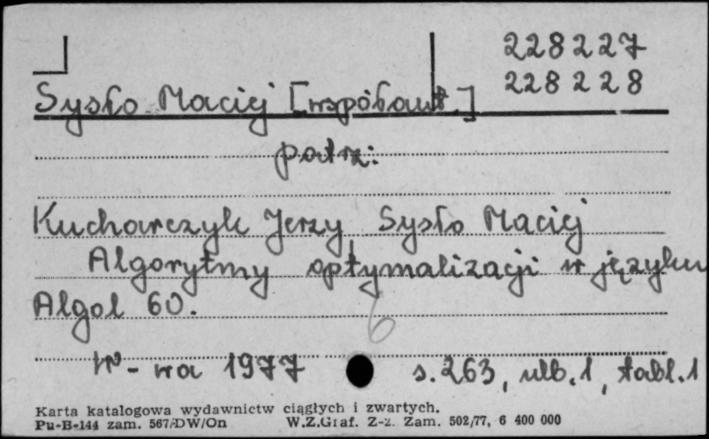 228227
228228
Sysło Maciej [współaut.]
patrz:
Kucharczyk Jerzy Sysło Maciej
Algorytmy optymalizacji w języku
Algol 60.
6
W-wa 1977 s.263, ulb.1, tabl.1
Karta katalogowa wydawnictw ciągłych i zwartych.
Pu-B-144 zam. 567/DW/On W.Z.Graf. Z-z. Zam. 502/77, 6 400 000